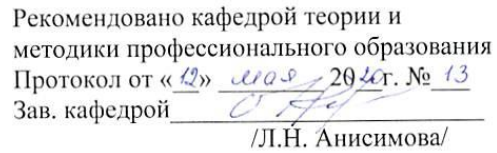 Рекомендовано кафедрой теории и
методики профессионального образования
Протокол от «12» мая 2020г. № 13
Зав. кафедрой
/Л.Н. Анисимова/